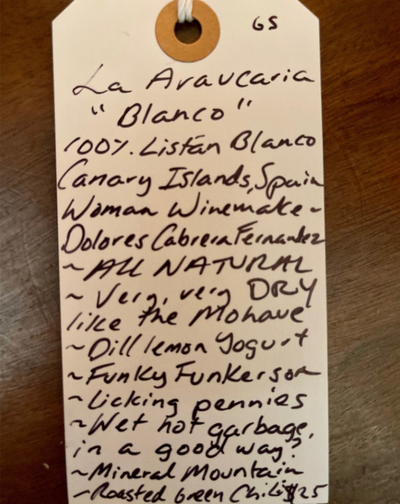 GS
La Araucaria
"Blanco"
100%. Listán Blanco
Canary Islands, Spain
Woman Winemake~
Dolores Cabrera Fernandez
~ALL NATURAL
~Very, very DRY
like the Mohave
~Dill lemon Yogurt
~Funky Funkerson
~Licking pennies
~Wet hot garbage,
in a good way?
~Mineral Mountain
~Roasted Green Chili $25